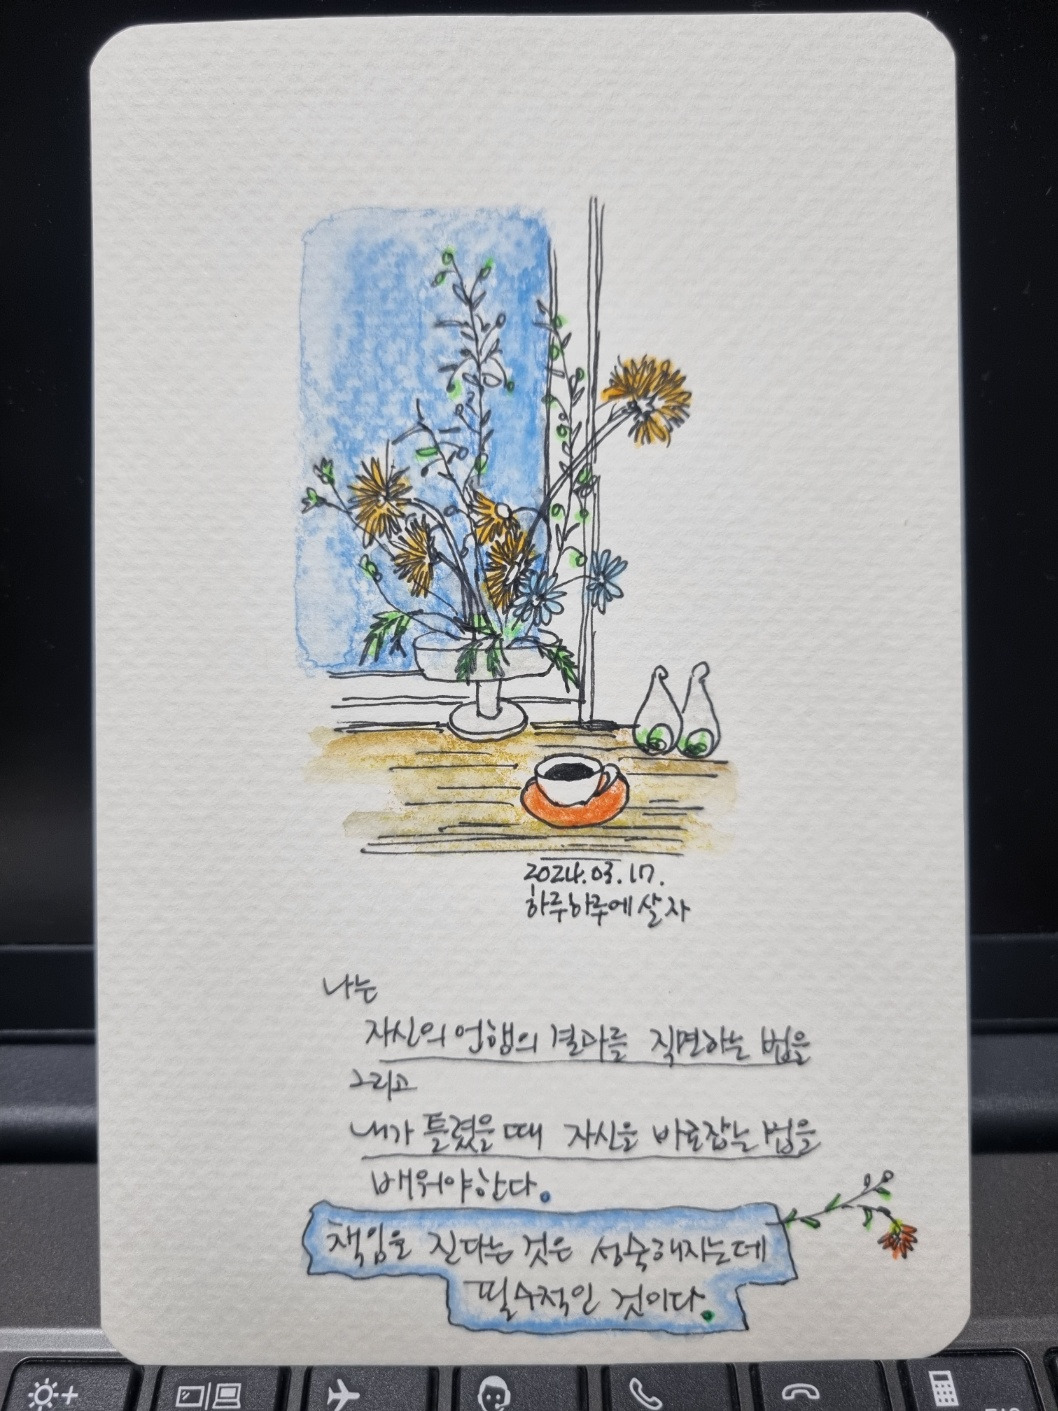 2024.03.17.
하루하루에 살자
나는
자신의 언행의 결과를 직면하는 법을
그리고
내가 틀렸을 때 자신을 바로잡는 법을
배워야한다.
책임을 진다는 것은 성숙해지는데
필수적인 것이다.